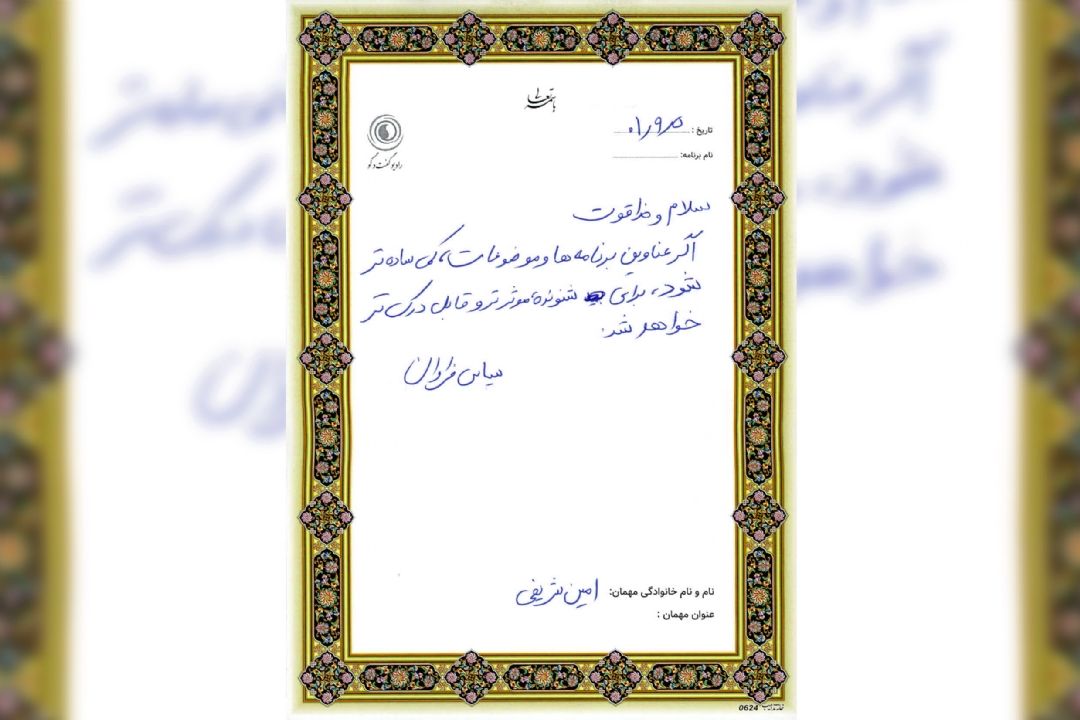 باسمه تعالی
تاریخ : ۰۱٫۹٫۵
نام برنامه:
رادیو گفت و گو
سلام و خداقوت
اگر عناوین برنامه ها و موضوعات، کمی ساده تر
شود، برای شنونده موثرتر و قابل درک تر
خواهد شد.
سپاس فراوان
نام و نام خانوادگی مهمان: امین شریفی
عنوان مهمان :
0624